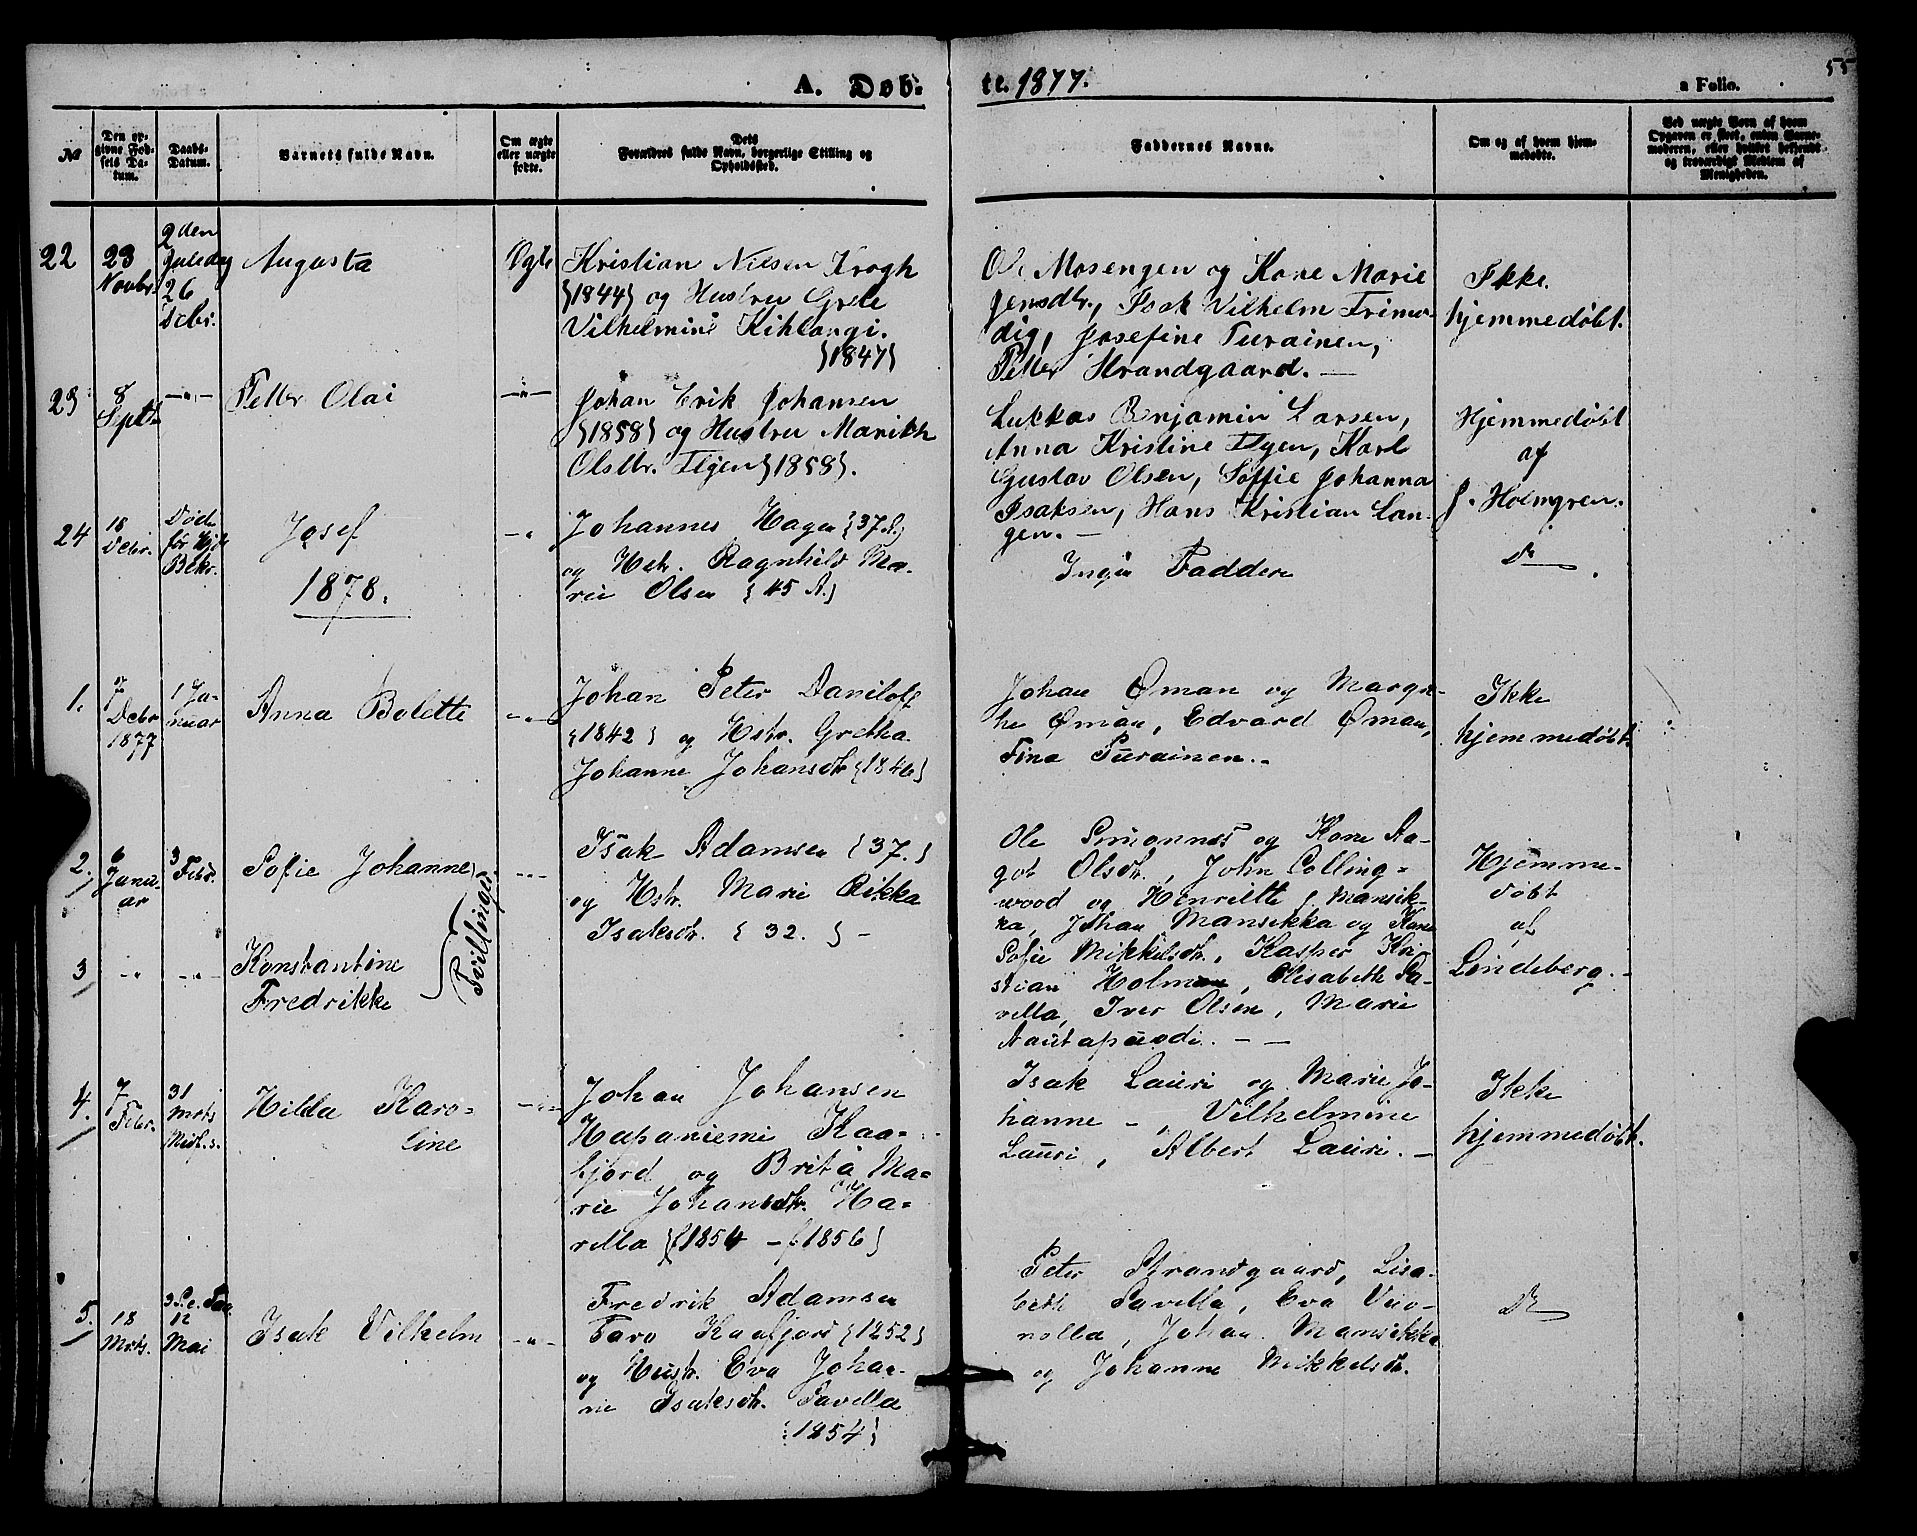 A. Døb- te. 1877.
a Folio. 55
№
Den opgivne Fødsels Datum.
Daabs-Datum.
Barnets fulde Navn.
Om ægte eller uægte fødte.
Dets Forældres fulde Navn, borgerlige Stilling og Opholdssted.
Faddernes Navne.
Om og af hvem hjemmedøbte.
Ved uægte Børn af hvem Opgaven er skeet, enten Barnemoderen, eller hvilket bekjendt og troværdigt Medlem af Menigheden.
22
23
Novbr.
2den
Juledag
26
Debr.
Augusta
Ægte
Kristian Nilsen Krogh
{1844} og Hustru Grete
Vilhelmine Kihlangi.
{1847}
Ole Mosengen og Kone Marie
Jensdtr., Isak Vilhelm Frimo-
dig, Josefine Turainen,
Petter Strandgaard. —
Ikke
hjemmedøbt.
23
8
Septbr
—"—
Petter Olai
—"—
Johan Erik Johansen
{1858} og Hustru Marith
Olsdtr. Flyen {1858}.
Lukkas Benjamin Larsen,
Anna Kristine Flyen, Karl
Gustav Olsen, Soffie Johanna
Isaksen, Hans Kristian Lan-
gen. —
Hjemmedøbt
af
J. Holmgren.
24
18
Debr.
Døde
før Hjd.
Bekr.
Josef
—"
Johannes Hagen {37 A.}
og Hst. Ragnhild Ma-
rie Olsen {45 A.}
Ingen Faddere
Do
1878.
1.
7
Debr
1877
1 Ja-
nuar
Anna Bolette
—"—
Johan Peter Daniloff
{1842} og Hstr. Gretha
Johanne Johansdtr {1846}
Johan Øman og Margre-
the Øman, Edvard Øman,
Fina Purainen.-
Ikke
hjemmedøbt.
2.
6
Janu-
ar
3
Febr.
Sofie Johanne
—"—
Isak Adamsen {37.}
og Hstr. Marie Rikka
Isaksdtr. {32.} -
Ole Simonnes og Kone Aa-
got Olsdtr., John Colling-
wood og Henriette J. Mansik-
ka, Johan Mansikka og Kone
Sofie Mikkelsdtr., Kasper Kri-
stian Holmen, Elisabeth Sa-
vella, Iver Olsen, Marie
Nautapuodi. — —
Hjemme-
døbt
af
Lindeberg.-
3
-"
-"-
Konstantine
Fredrikke
Tvillinger
4.
7
Febr.
31
Mrts
Midf. S.
Hilda Karo-
line
—"—
Johan Johansen
Hapaniemi Kaa-
fjord og Brita Ma-
rie Johansdtr. Ha-
rella {f. 1854 — f. 1856}
Isak Lauri og Marie Jo-
hanne —"— Vilhelmine
Lauri, Albert Lauri. —
Ikke
hjemmedøbt.
5.
18
Mrts.
12
Mai
Isak Vilhelm
—"—
Fredrik Adamsen
Taro Kaafjord {1852}
og Hustr. Eva Johan-
ne Isaksdtr. Savella
{1854}
Peter Strandgaard, Lisa-
beth Savella, Eva Vuo-
nolla, Johan Mansikka
og Johanne Mikkelsdtr.
Do